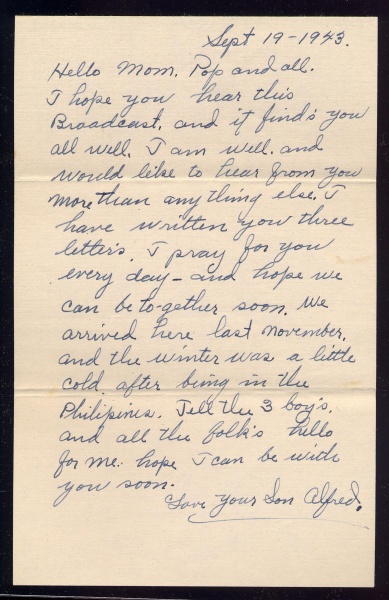 Sept 19-1943.
Hello Mom. Pop and all.
I hope you hear this
Broadcast. and it find's you
all well. I am well. and
would like to hear from you
more than any thing else. I
have written you three
letter's. I pray for you
every day - and hope we
can be to-gether soon. We
arrived here last november.
and the winter was a little
cold after being in the
Philipines. Tell the 3 boy's.
and all the folk's hello
for me. hope I can be with
you soon.
Love your Son Alfred.